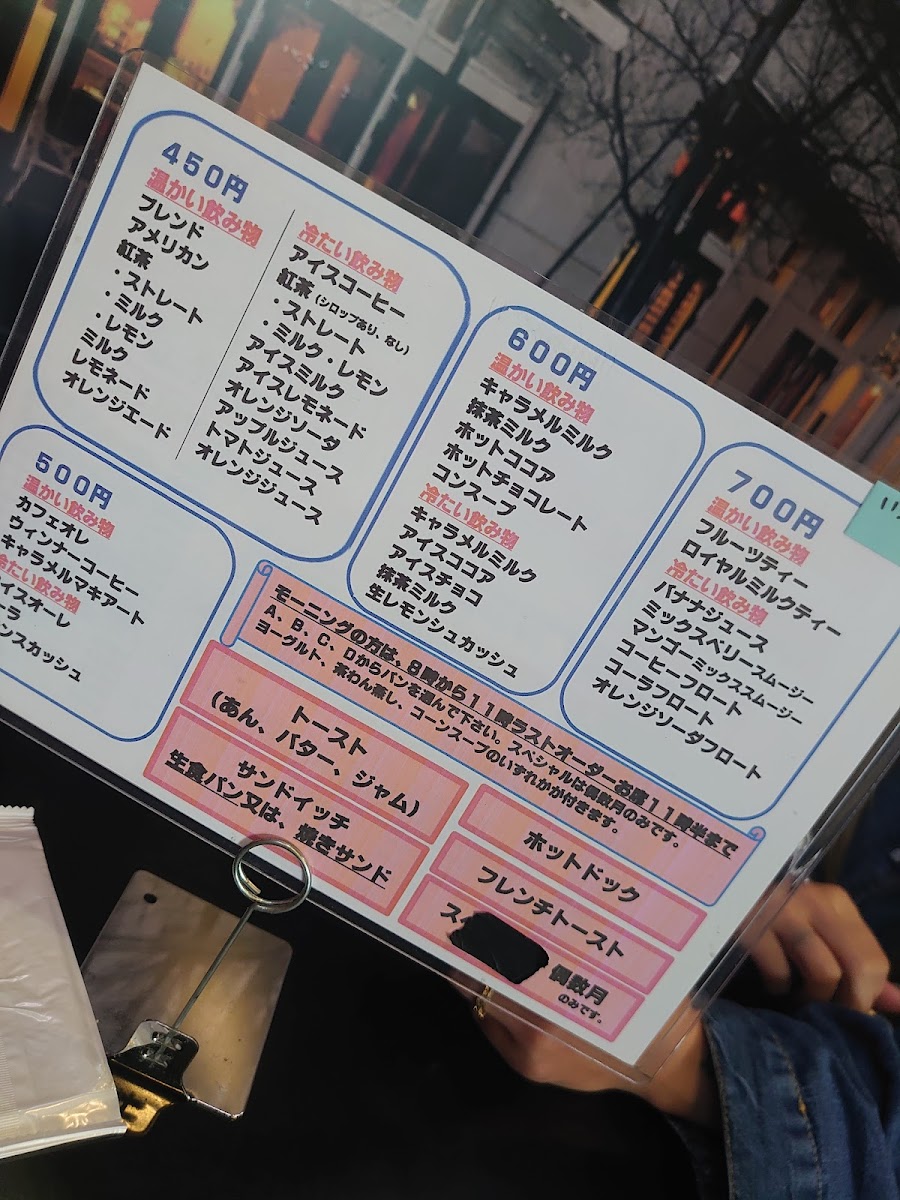 450円
温かい飲み物
ブレンド
アメリカン
紅茶
・ストレート
・ミルク
・レモン
ミルク
レモネード
オレンジエード
冷たい飲み物
アイスコーヒー
紅茶(シロップあり、なし)
・ストレート
・ミルク・レモン
アイスミルク
アイスレモネード
オレンジソーダ
アップルジュース
トマトジュース
オレンジジュース
500円
温かい飲み物
カフェオレ
ウィンナーコーヒー
キャラメルマキアート
冷たい飲み物
アイスオーレ
ーラ
ンスカッシュ
600円
温かい飲み物
キャラメルミルク
抹茶ミルク
ホットココア
ホットチョコレート
コンスープ
冷たい飲み物
キャラメルミルク
アイスココア
アイスチョコ
抹茶ミルク
生レモンシュカッシュ
700円
温かい飲み物
フルーツティー
ロイヤルミルクティー
冷たい飲み物
バナナジュース
ミックスベリースムージー
マンゴーミックススムージー
コーヒーフロート
コーラフロート
オレンジソーダフロート
モーニングの方は、8時から11時ラストオーダーお席11時半まで
A、B、C、Dからパンを選んで下さい。スペシャルは偶数月のみです。
ヨーグルト、茶わん蒸し、コーンスープのいずれかが付きます。
トースト
(あん、バター、ジャム)
サンドイッチ
生食パン又は、焼きサンド
ホットドック
フレンチトースト
ス
偶数月
のみです。